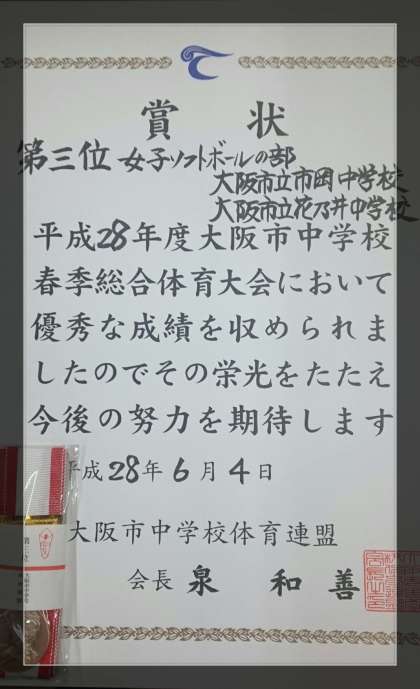 賞状
第三位 女子ソフトボールの部
大阪市立市岡中学校
大阪市立花乃井中学校
平成28年度大阪市中学校
春季総合体育大会において
優秀な成績を収められま
したのでその栄光をたたえ
今後の努力を期待します
平成28年6月4日
大阪市中学校体育連盟
会長 泉 和善